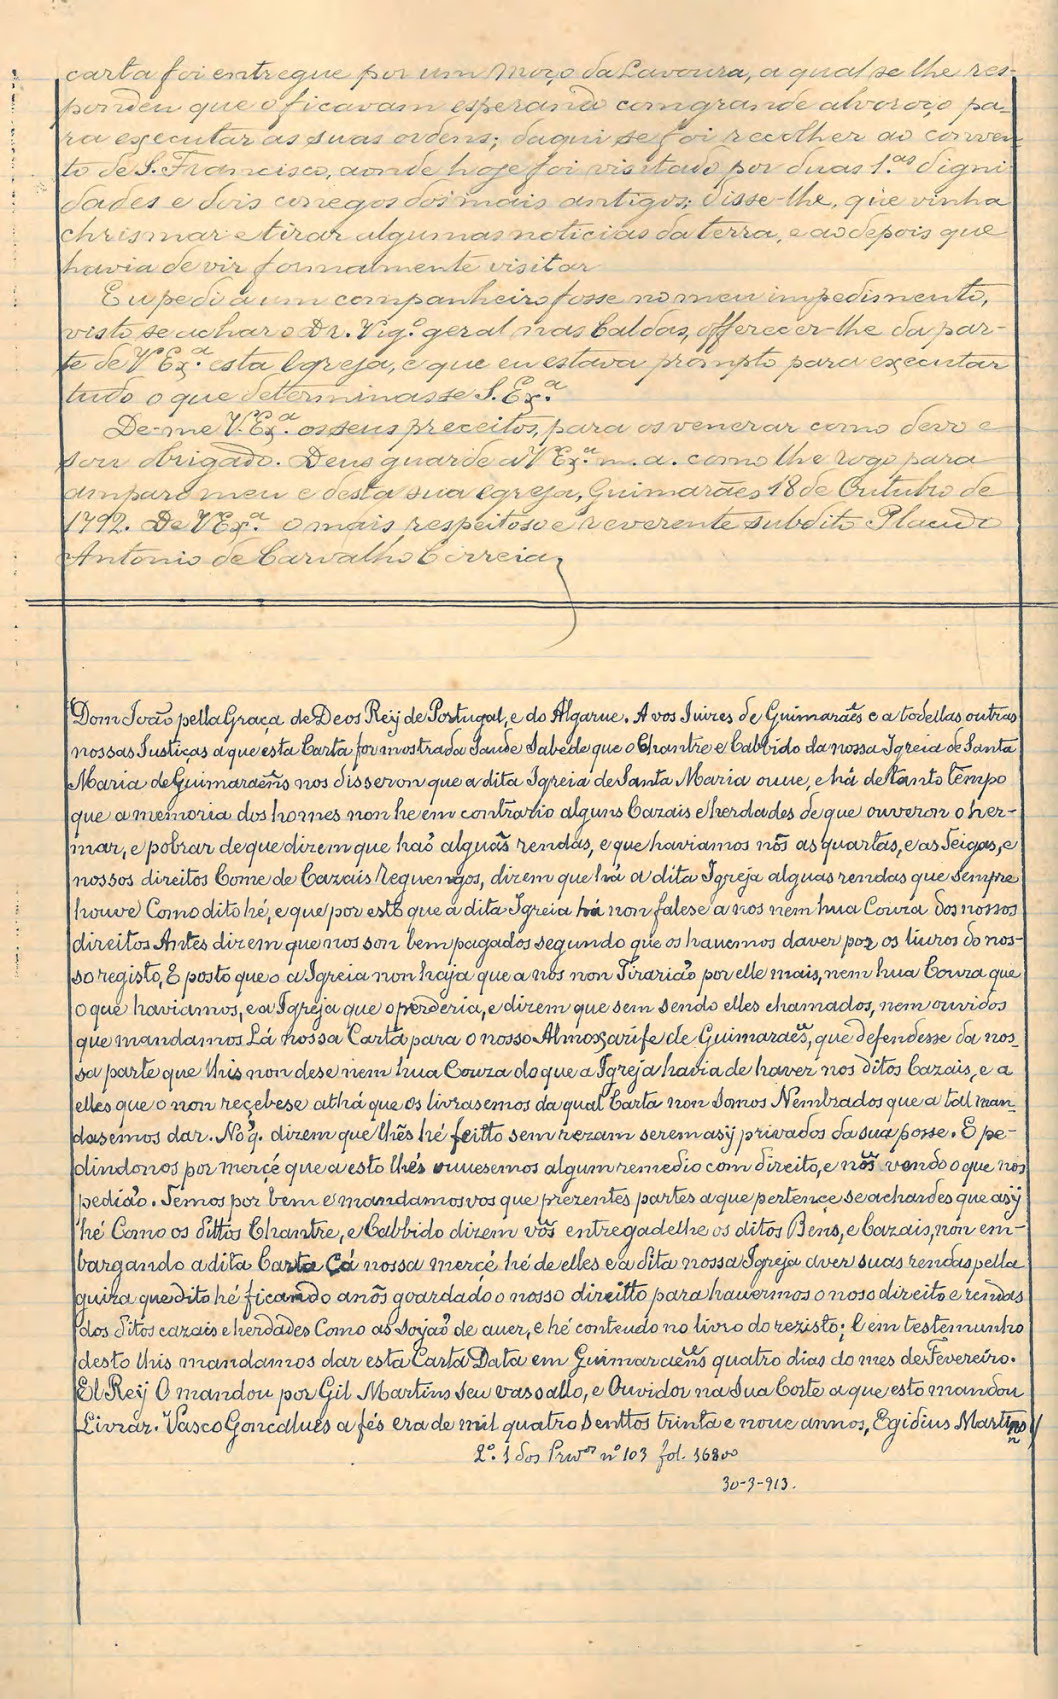 carta foi entregue por um Moço da Lavoura, a qual se lhe res-
pondeu que o ficavam esperando com grande alvoroço pa-
ra executar as suas ordens; daqui se foi recolher ao conven-
to de S. Francisco, aonde hoje foi visitado por duas 1.as digni-
dades e dois conegos dos mais antigos; disse-lhe, que vinha
chrismar e tirar algumas noticias da terra, e ao depois que
havia de vir formalmente visitar
Eu pedi a um companheiro fosse no meu impedimento,
visto se achar o Dr. Vig.o geral nas Caldas, offerecer-lhe da par-
te de V Ex.a esta Egreja, e que eu estava prompto para executar
tudo o que determinasse S. Ex.a
De-me V. Ex.a os seus preceitos, para os venerar como devo e
sou obrigado. Deus guarde a V Ex.a m. a. como lhe rogo para
amparo meu e desta sua egreja, Guimarães 18 de Outubro de
1792. De V Ex.a o mais respeitoso e reverente subdito Placido
Antonio de Carvalho Correia
Dom João pella Graça de Deos Reÿ de Portugal, e do Algarue. A vos Juizes de Guimaraẽs e a todellas outras
nossas Justiças a que esta Carta for mostrada Saude Sabede que o Chantre e Cabbido da nossa Igreia de Santa
Maria de Guimaraẽns nos disseron que a dita Igreia de Santa Maria ouue, e há de tanto tempo
que a memoria dos homes non he em contrario alguns Cazais e herdades de que ouveron o her-
mar, e pobrar de que dizem que haõ alguãs rendas, e que haviamos nós as quartas, e as Teigas, e
nossos direitos Come de Cazais Reguengos, dizem que há a dita Igreja alguas rendas que Sempre
houve Como dito hé, e que por esto que a dita Igreia há non falese a nos nem hua Couza dos nossos
direitos Antes dizem que nos son bem pagados segundo que os hauemos daver por os liuros do nos-
so registo, E posto que o a Igreia non haja que a nós non Tirariaõ por elle mais, nem hua Couza que
o que haviamos, e a Igreja que o perderia, e dizem que sem sendo elles chamados, nem ouvidos
que mandamos Lá nossa Carta para o nosso Almoxarife de Guimaraẽs, que defendesse da nos-
sa parte que lhis non dese nem hua Couza do que a Igreja havia de haver nos ditos Cazais, e a
elles que o non reçebese athá que os livrasemos da qual Carta non Somos Nembrados que a tal man-
dasemos dar. No q. dizem que lhẽs hé feitto sem rezam serem asÿ privados da sua posse. E pe-
dindonos por merçé que a esto lhés ouuesemos algum remedio com direito, e nós vendo o que nos
pediaõ. Temos por bem e mandamosvos que prezentes partes a que pertençe se achardes que asÿ
hé Como os dittos Chantre, e Cabbido dizem vós entregadelhe os ditos Bens, e Cazais, non em-
bargando a dita Carta Çá nossa merçé hé de elles e a dita nossa Igreja aver suas rendas pella
guiza que dito hé ficando a nós goardado o nosso direitto para hauermos o noso direito e rendas
dos ditos cazais e herdades Como as soyaõ de auer, e hé contendo no livro do rezisto; E em testemunho
desto lhis mandamos dar esta Carta Data em Guimaraẽns quatro dias do mes de Fevereiro.
El Reÿ O mandou por Gil Martins Seu vassallo, e Ouvidor na Sua Corte a que esto mandou
Livrar. Vasco Goncalues a fés era de mil quatro Senttos trinta e noue annos, Egidius Martins
L.o 1 dos n.o 103 fol.
30-3-913.